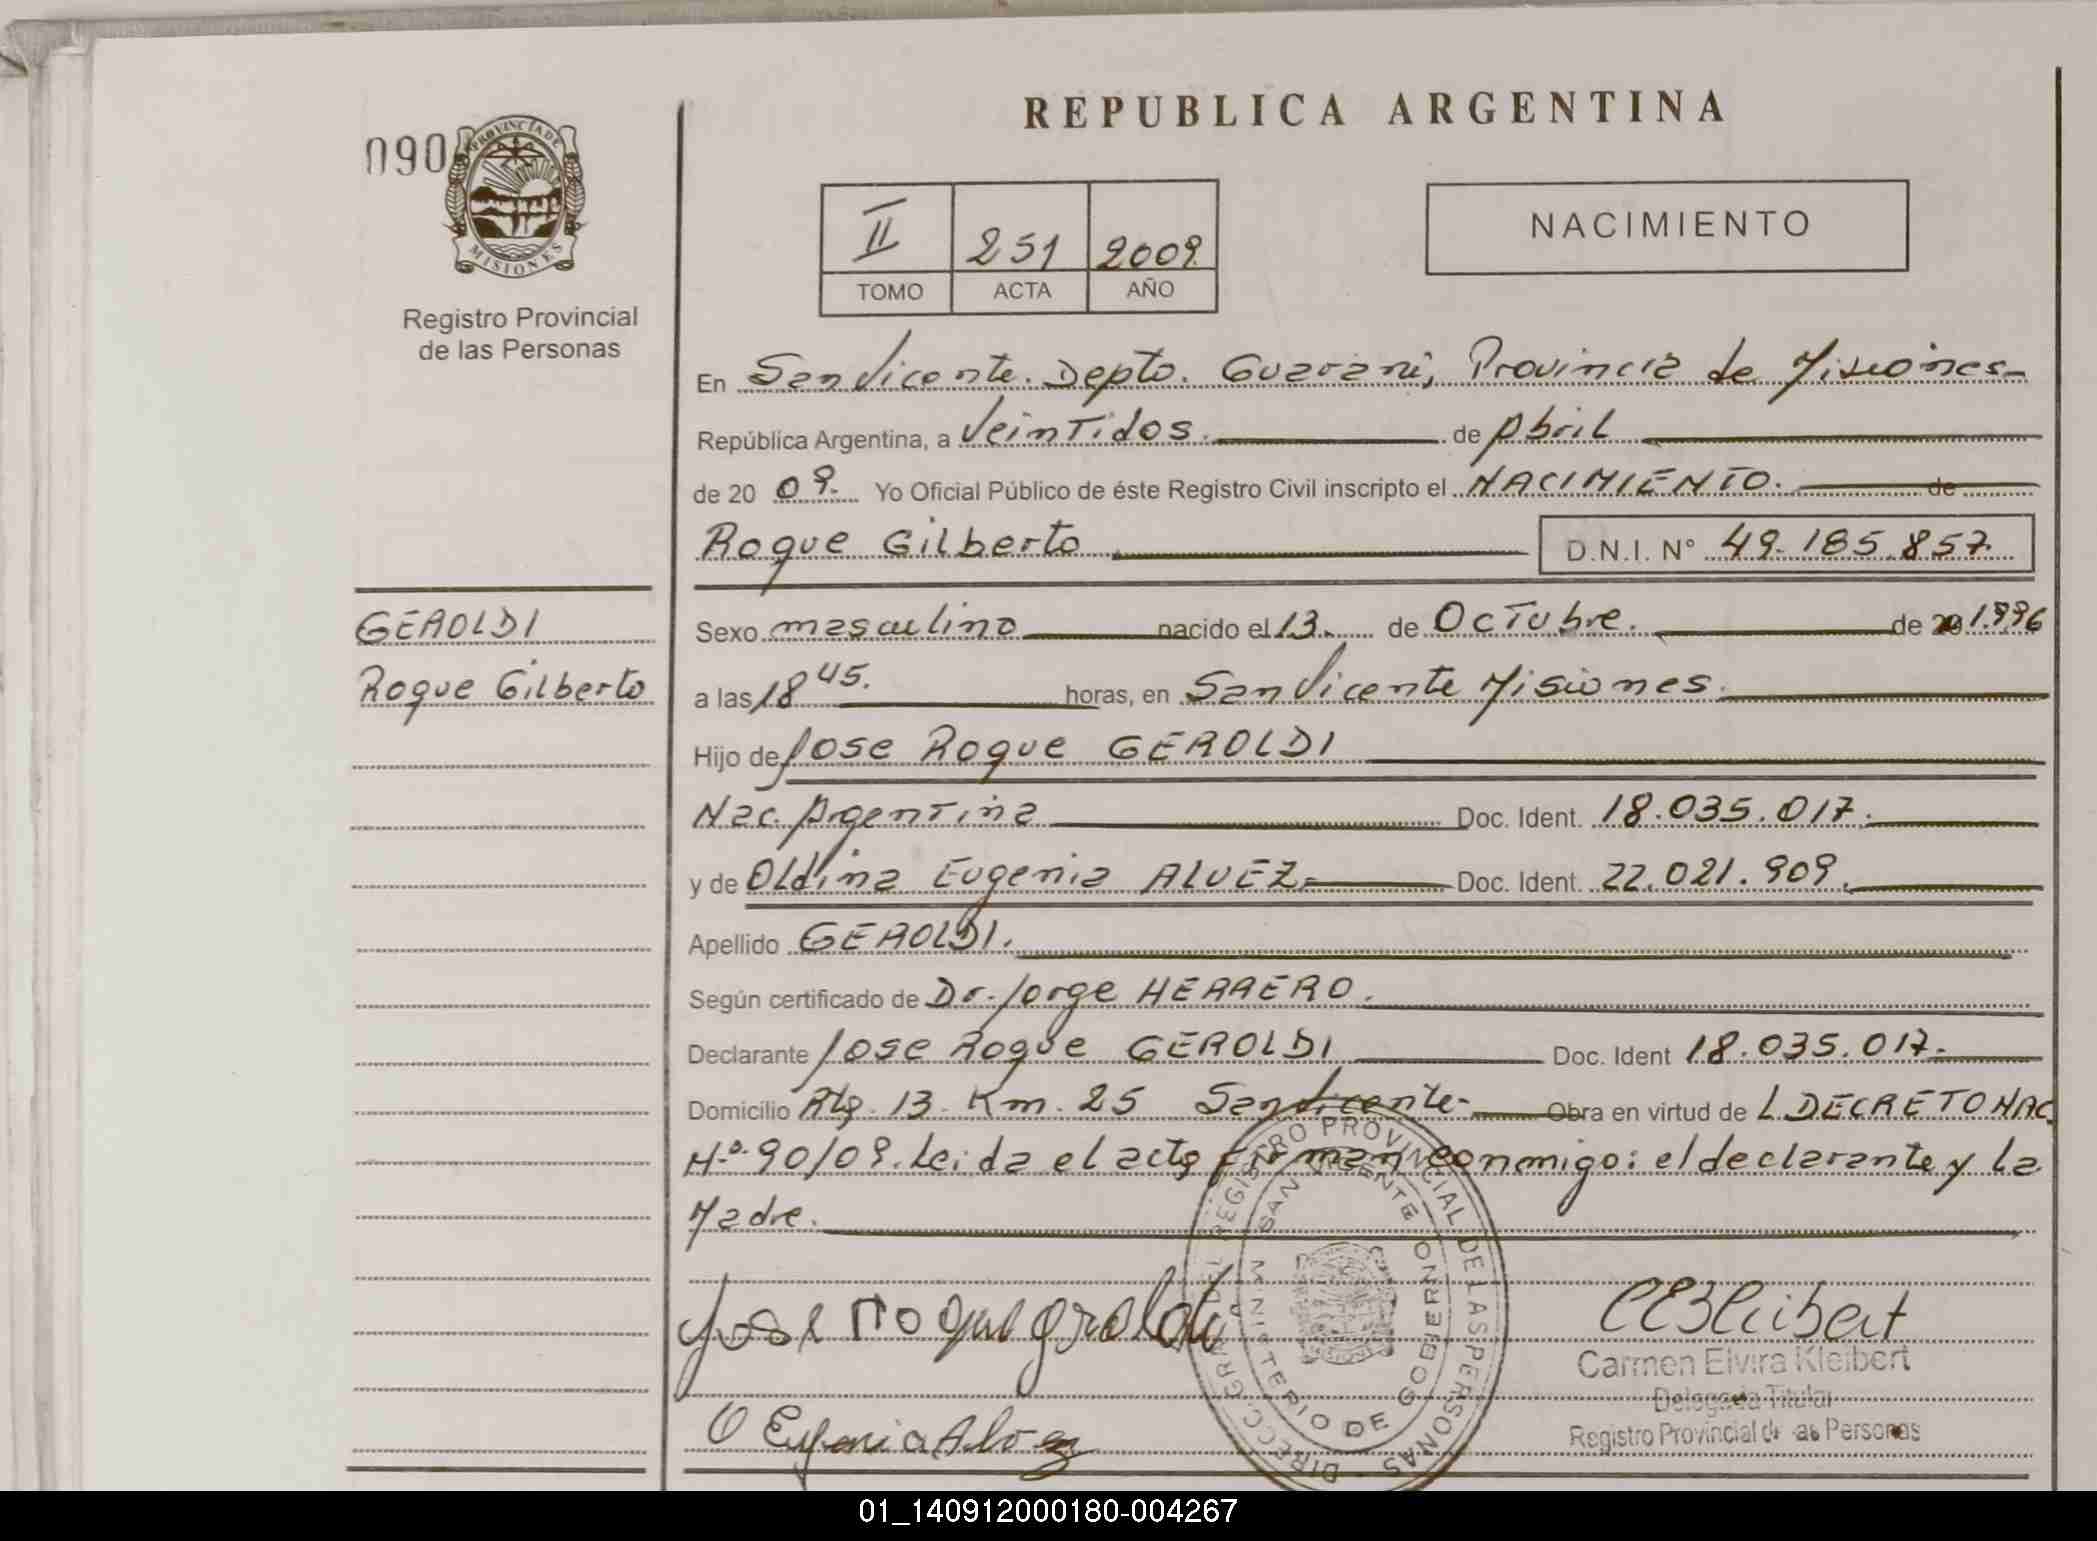 REPUBLICA ARGENTINA
090
PROVINCIA DE
MISIONES
Registro Provincial
de las Personas
II 251 2009
TOMO ACTA AÑO
NACIMIENTO
GEROLDI
Roque Gilberto
En San Vicente. Depto. Guarani, Provincia de Misiones-
República Argentina, a Veintidos. de Abril
de 20 09. Yo Oficial Público de éste Registro Civil inscripto el NACIMIENTO. de
Roque Gilberto D.N.I. N° 49.185.857
Sexo masculino nacido el 13. de Octubre. de 20 1996
a las 18 45. horas, en San Vicente Misiones.
Hijo de Jose Roque GEROLDI
Nac. Argentina Doc. Ident. 18.035.017.
y de Oldina Eugenia ALVEZ- Doc. Ident. 22.021.909.
Apellido GEROLDI.
Según certificado de Dr. Jorge HERRERO.
Declarante Jose Roque GEROLDI Doc. Ident 18.035.017.
Domicilio Rta. 13. Km. 25 San Vicente- Obra en virtud de L DECRETO NAC.
Nº 90/09. Leida el acta firman conmigo: el declarante y la
Madre.
Jose Roque geroldi
O Eugenia Alvez
DIRECC. GRAL. DEL REGISTRO PROVINCIAL DE LAS PERSONAS
SAN VICENTE
MINISTERIO DE GOBIERNO
CEKleibert
Carmen Elvira Kleibert
Delegada Titular
Registro Provincial de las Personas
01_140912000180-004267